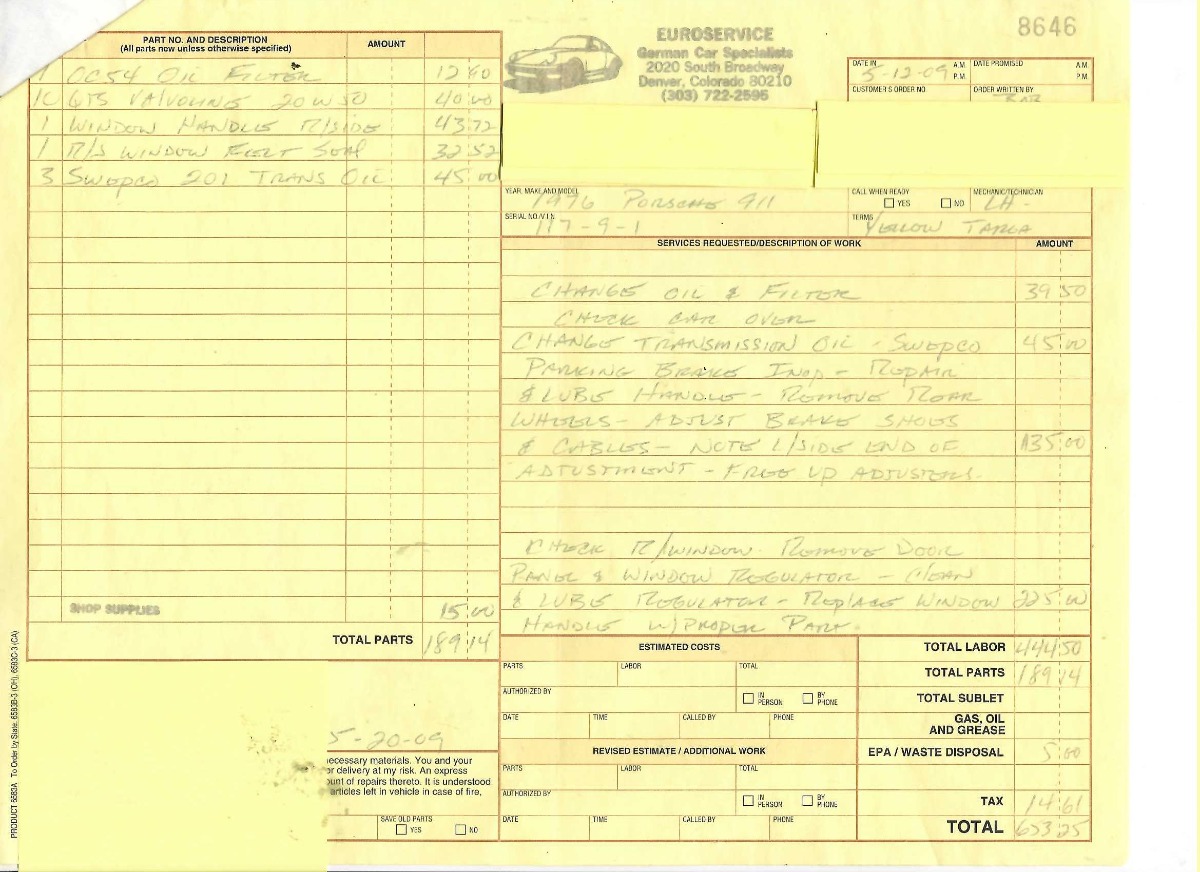 8646
EUROSERVICE
German Car Specialists
2020 South Broadway
Denver, Colorado 80210
(303) 722-2596
PART NO. AND DESCRIPTION
(All parts new unless otherwise specified)
AMOUNT
1 OC54 OIL FILTER 12 90
10 QTS VALVOLINE 20W50 40 00
1 WINDOW HANDLE R/SIDE 43 72
1 R/S WINDOW FELT SEAL 32 52
3 SWEPCO 201 TRANS OIL 45 00
SHOP SUPPLIES 15 00
TOTAL PARTS 189 14
DATE IN 5-12-09 A.M. P.M.
DATE PROMISED A.M. P.M.
CUSTOMER'S ORDER NO
ORDER WRITTEN BY
YEAR, MAKE AND MODEL 1976 PORSCHE 911
CALL WHEN READY YES NO
MECHANIC/TECHNICIAN
SERIAL NO./V.I.N. 117-9-1
TERMS YELLOW TARGA
SERVICES REQUESTED/DESCRIPTION OF WORK AMOUNT
CHANGE OIL & FILTER 39 50
CHECK CAR OVER
CHANGE TRANSMISSION OIL - SWEPCO 45 00
PARKING BRAKE INOP - REPAIR
& LUBE HANDLE - REMOVE REAR
WHEELS - ADJUST BRAKE SHOES
& CABLES - NOTE L/SIDE END OF 135 00
ADJUSTMENT - FREE UP ADJUSTERS.
CHECK R/WINDOW. REMOVE DOOR
PANEL & WINDOW REGULATOR - CLEAN
& LUBE REGULATOR - REPLACE WINDOW 225 00
HANDLE W/PROPER PART.
ESTIMATED COSTS
PARTS LABOR TOTAL
AUTHORIZED BY IN PERSON BY PHONE
DATE TIME CALLED BY PHONE
REVISED ESTIMATE / ADDITIONAL WORK
PARTS LABOR TOTAL
AUTHORIZED BY IN PERSON BY PHONE
DATE TIME CALLED BY PHONE
TOTAL LABOR 444 50
TOTAL PARTS 189 14
TOTAL SUBLET
GAS, OIL AND GREASE
EPA / WASTE DISPOSAL 5 00
TAX 14 61
TOTAL 653 25
5-20-09
necessary materials. You and your
or delivery at my risk. An express
unt of repairs thereto. It is understood
articles left in vehicle in case of fire,
SAVE OLD PARTS YES NO
PRODUCT 6583A To Order by State, 6583B-3 (OH), 6583C-3 (CA)